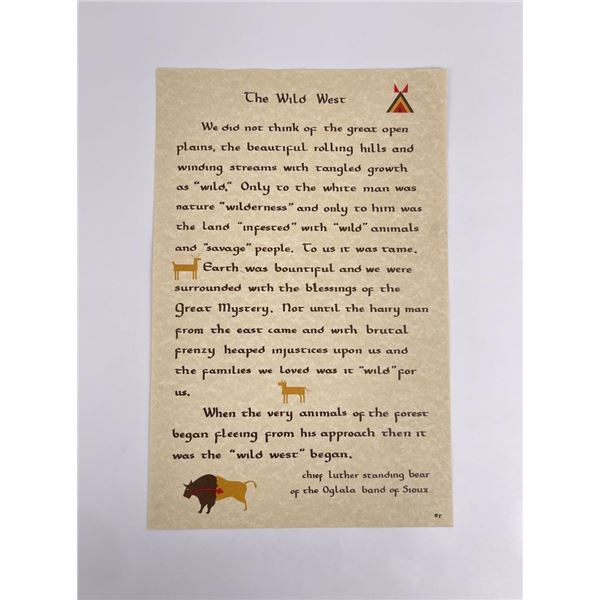 The Wild West
We did not think of the great open
plains, the beautiful rolling hills and
winding streams with tangled growth
as "wild." Only to the white man was
nature "wilderness" and only to him was
the land "infested" with "wild" animals
and "savage" people. To us it was tame.
Earth was bountiful and we were
surrounded with the blessings of the
Great Mystery. Not until the hairy man
from the east came and with brutal
frenzy heaped injustices upon us and
the families we loved was it "wild" for
us.
When the very animals of the forest
began fleeing from his approach then it
was the "wild west" began.
chief luther standing bear
of the Oglala band of Sioux